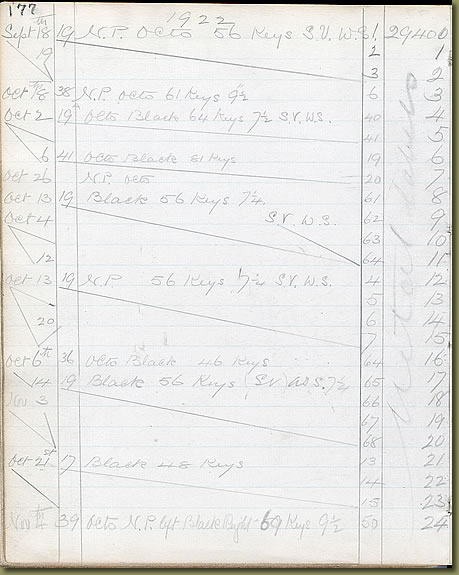 177
1922
Sept 18th 19 N.P. Octo 56 Keys S.V. W.S. 1 29400
19 2 1
3 2
Oct 18th 38 N.P. Octo 61 Keys 9½ 6 3
Oct 2 19 Octo Black 64 Keys 7½ S.V. W.S. 40 4
41 5
6 41 Octo Black 81 Keys 19 6
Oct 26 N.P. Octo 20 7
Oct 13 19 Black 56 Keys 7¼ 61 8
Oct 4 S.V. W.S. 62 9
63 10
12 64 11
Oct 13 19 N.P. 56 Keys 7¼ S.V. W.S. 4 12
5 13
20 6 14
7 15
Oct 6th 36 Octo Black 46 Keys 64 16
14 19 Black 56 Keys (S.V.) W.S. 7½ 65 17
Nov 3 66 18
67 19
68 20
Oct 21st 17 Black 48 Keys 13 21
14 22
15 23
Nov 39 Octo N.P. left Black Right 69 Keys 9½ 50 24